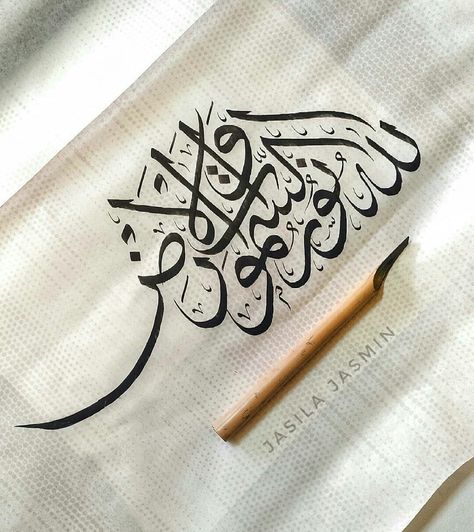 الله نور السموات والأرض
JASILA JASMIN